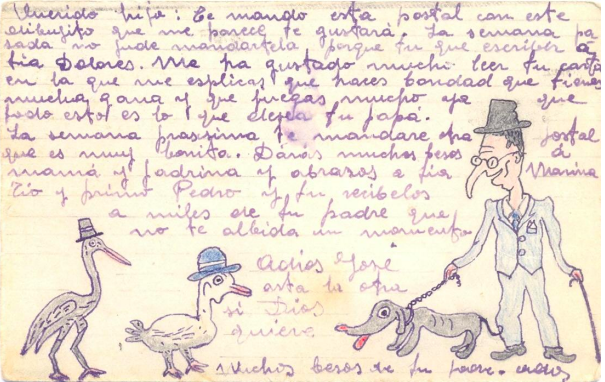 Querido hijo: Te mando esta postal con este
dibujito que me parece te gustará. La semana pa
sada no pude mandartela porque tuve que escribir a
tia Dolores. Me ha gustado mucho leer tu carta
en la que me esplicas que haces bondad que tienes
mucha gana y que juegas mucho ya que
todo esto es lo que desea tu papá.
La semana prossima te mandare otra postal
que es muy bonita. Darás muchos besos á
mamá y padrina y abrazos a tia Marina
Tio y primo Pedro y tu recibelos
a miles de tu padre que
no te albida un momento
Adios José
asta la otra
si Dios
quiere
Muchos besos de tu padre